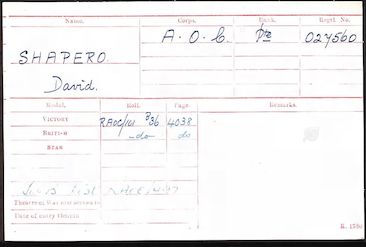 Name. Corps. Rank. Regtl. No.
SHAPERO A.O.C. Pte 027560
David.
Medal. Roll. Page. Remarks.
VICTORY RAOC/101 B36 4038
BRITISH -do- do
STAR
Theatre of War first served in
Date of entry therein
K. 1380